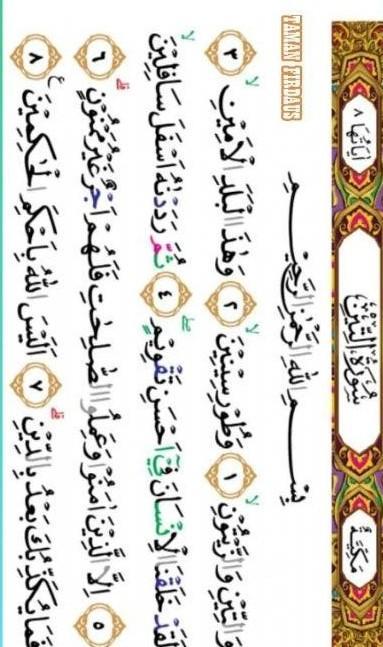 اٰيَاتُهَا ٨
سُوْرَةُ التِّيْنِ
مَكِّيَّةٌ
TAMAN FIRDAUS
بِسْــــــمِ اللّٰهِ الرَّحْمٰنِ الرَّحِيْــــــمِ
وَالتِّيْنِ وَالزَّيْتُوْنِ ١ وَطُوْرِ سِيْنِيْنَ ٢ وَهٰذَا الْبَلَدِ الْاَمِيْنِ ٣
لَقَدْ خَلَقْنَا الْاِنْسَانَ فِيْٓ اَحْسَنِ تَقْوِيْمٍ ٤ ثُمَّ رَدَدْنٰهُ اَسْفَلَ سَافِلِيْنَ
٥ اِلَّا الَّذِيْنَ اٰمَنُوْا وَعَمِلُوا الصّٰلِحٰتِ فَلَهُمْ اَجْرٌ غَيْرُ مَمْنُوْنٍ ٦
فَمَا يُكَذِّبُكَ بَعْدُ بِالدِّيْنِ ٧ اَلَيْسَ اللّٰهُ بِاَحْكَمِ الْحٰكِمِيْنَ ٨